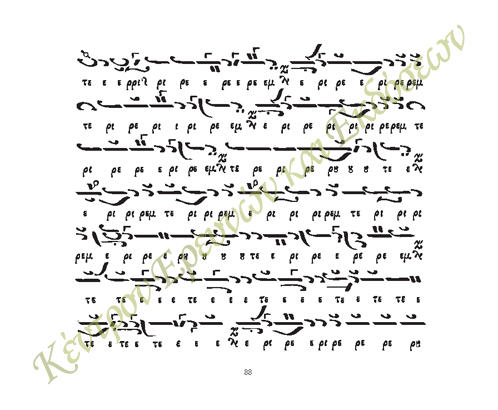 τε ε ε ρρι ρι ρε ε ρε ε ρε εμ ε ρι ρε ρε ρι ρε ρεμ
τε ρι ρε ρι ι ρι ρε εμ ε ρι ρε ρι ρι ρι ρε ρεμ τε
ρι ρε ρε ε ρι ρε εμ τε ρε ρι ρε ρου ου ου τε ε
ε ρι ρι ρεμ τε ρι ρι ρεμ ε ρι ρι ρεμ τε ρι ρι ρι
ρεμ ε ρι ρε ε ρου ου ου τε ε ρι ρε ρι ρε ε ρε εμ
τε τε τε ε ε τε ε ε ε τε ε ε ε τε ε τε τε
τε ε τε ε τε ε ε ε ε ρε ρε ε ρε ρε ρι ρε ρου
88
Κέντρον Ερευνών και Εκδόσεων